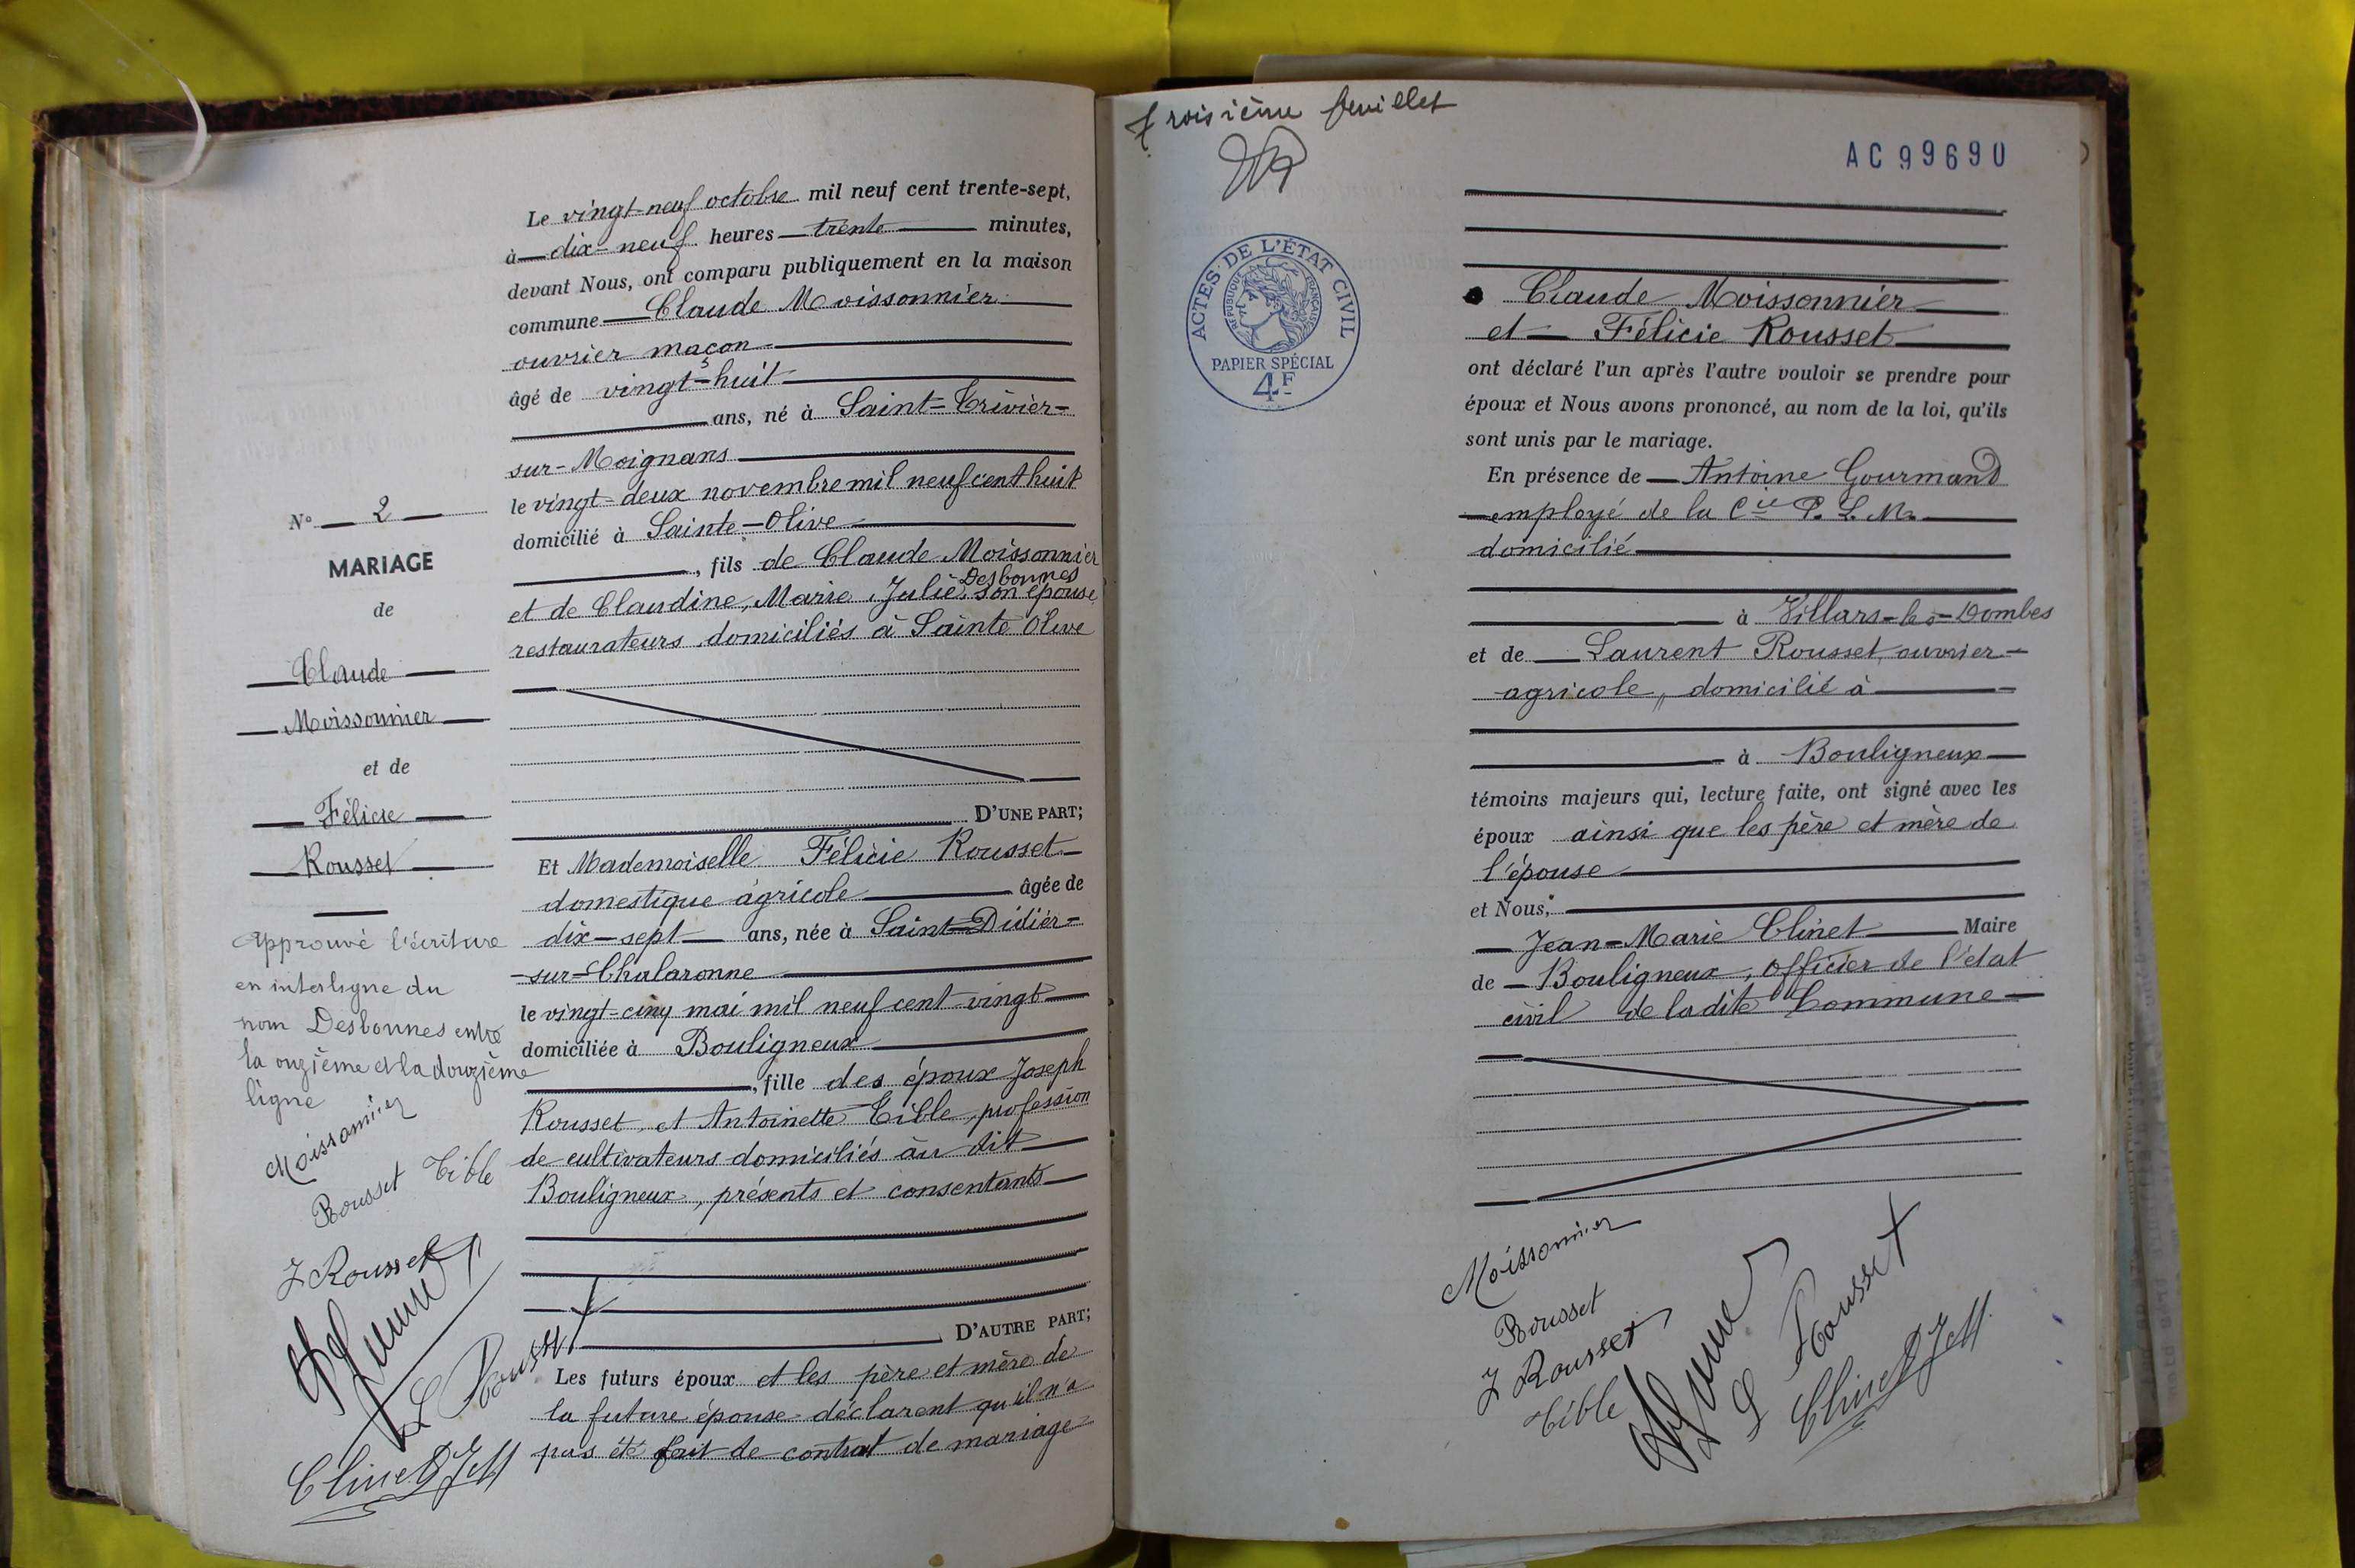 Le vingt-neuf octobre mil neuf cent trente-sept,
à dix-neuf heures trente minutes,
devant Nous, ont comparu publiquement en la maison
commune Claude Moissonnier
ouvrier maçon
âgé de vingt-huit
ans, né à Saint-Trivier-
sur-Moignans
le vingt-deux novembre mil neuf cent huit
domicilié à Sainte-Olive
, fils de Claude Moissonnier
Desbonnes
et de Claudine, Marie, Julie, son épouse
restaurateurs domiciliés à Sainte Olive
D'UNE PART;
Et Mademoiselle Félicie Rousset
domestique agricole âgée de
dix-sept ans, née à Saint-Didier-
-sur-Chalaronne
le vingt-cinq mai mil neuf cent vingt
domiciliée à Bouligneux
, fille des époux Joseph
Rousset et Antoinette Tible, profession
de cultivateurs domiciliés au dit
Bouligneux, présents et consentants
D'AUTRE PART;
Les futurs époux et les père et mère de
la future épouse déclarent qu'il n'a
pas été fait de contrat de mariage
N° 2
MARIAGE
de
Claude
Moissonnier
et de
Félicie
Rousset
Approuvé l'écriture
en interligne du
nom Desbonnes entre
la onzième et la douzième
ligne
Moissonnier
Rousset Tible
J Rousset
L Rousset
Clinet J M
troisième feuillet
AC 99690
ACTES DE L'ÉTAT CIVIL
RÉPUBLIQUE FRANÇAISE
PAPIER SPÉCIAL
4F
Claude Moissonnier
et Félicie Rousset
ont déclaré l'un après l'autre vouloir se prendre pour
époux et Nous avons prononcé, au nom de la loi, qu'ils
sont unis par le mariage.
En présence de Antoine Gourmand
employé de la Cie P. L. M.
domicilié
à Villars-les-Dombes
et de Laurent Rousset, ouvrier-
agricole, domicilié à
à Bouligneux
témoins majeurs qui, lecture faite, ont signé avec les
époux ainsi que les père et mère de
l'épouse
et Nous,
Jean-Marie Clinet Maire
de Bouligneux, officier de l'état
civil de ladite Commune
Moissonnier
Rousset
J Rousset
Tible
L Rousset
Clinet J M